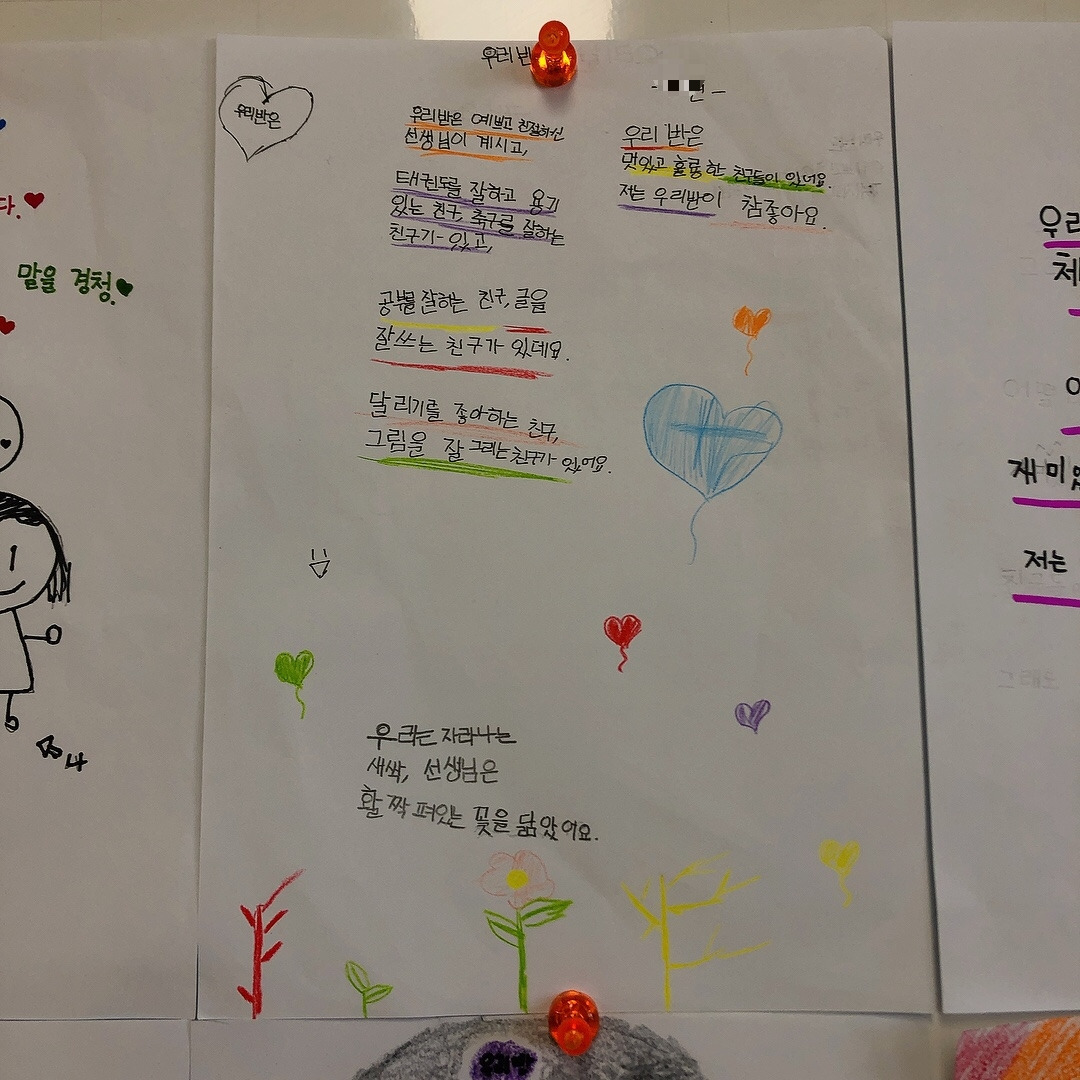 다.
말을 경청.
나
우리반
우리반은
우리반은 예쁘고 친절하신
선생님이 계시고,
태권도를 잘하고 용기
있는 친구, 축구를 잘하는
친구가 있고,
공부를 잘하는 친구, 글을
잘쓰는 친구가 있데요.
달리기를 좋아하는 친구,
그림을 잘 그리는 친구가 있어요.
우리 반은
멋있고 훌륭한 친구들이 있어요.
저는 우리반이 참좋아요.
우리는 자라나는
새싹, 선생님은
활짝 펴있는 꽃을 닮았어요.
우리
체
재미있
저는